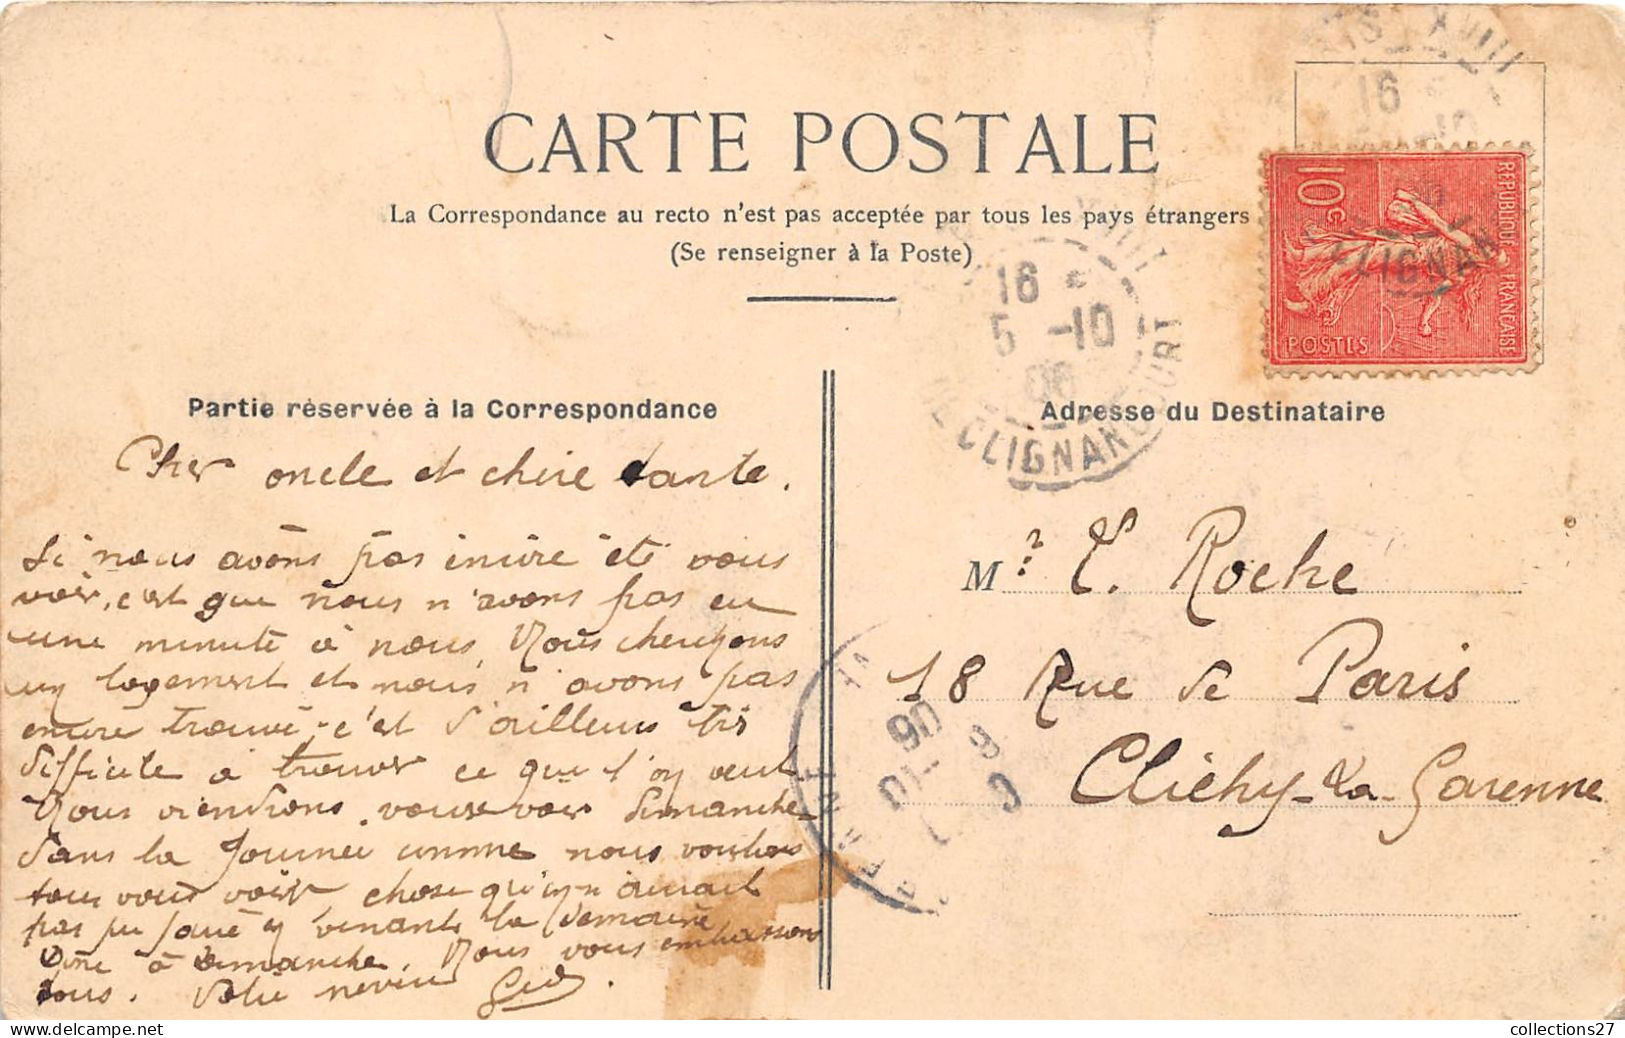 CARTE POSTALE
La Correspondance au recto n'est pas acceptée par tous les pays étrangers
(Se renseigner à la Poste)
PARIS XVIII
16
5 -10
06
CLIGNANCOURT
10c
REPUBLIQUE FRANÇAISE
POSTES
Partie réservée à la Correspondance
Cher oncle et chère tante.
Si nous avons pas encore été vous
voir, c'est que nous n'avons pas eu
une minute à nous. Nous cherchons
un logement et nous n'avons pas
encore trouvé, c'est d'ailleurs très
difficile à trouver ce que l'on veut
Nous viendrons vous voir dimanche
dans la journée comme nous voulions
tous vous voir chose qu'on aurait
pas pu faire en venant la semaine
Donc à dimanche. Nous vous embrassons
tous. Votre neveu
Adresse du Destinataire
Mr. E. Roche
18 Rue de Paris
Clichy-la-Garenne
collections27